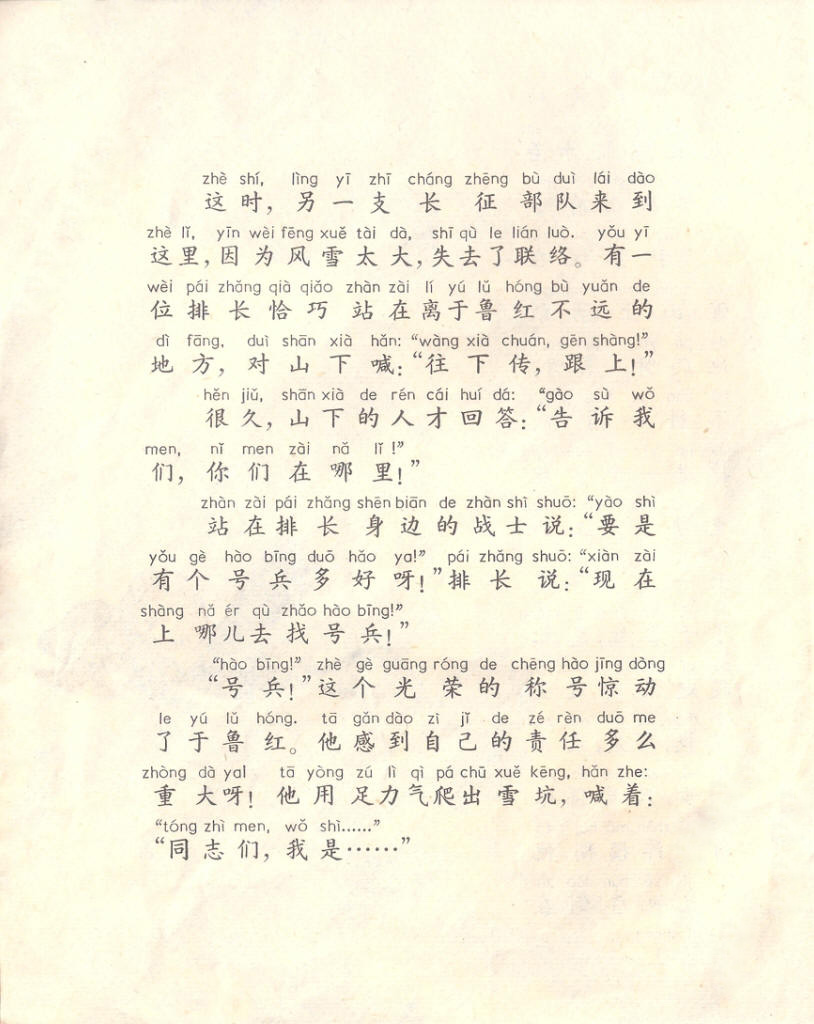 zhè shí, lìng yī zhī cháng zhēng bù duì lái dào
这时，另一支长征部队来到
zhè lǐ, yīn wèi fēng xuě tài dà, shī qù le lián luò. yǒu yī
这里，因为风雪太大，失去了联络。有一
wèi pái zhǎng qià qiǎo zhàn zài lí yú lǔ hóng bù yuǎn de
位排长恰巧站在离于鲁红不远的
dì fāng, duì shān xià hǎn: “wàng xià chuán, gēn shàng!”
地方，对山下喊：“往下传，跟上！”
hěn jiǔ, shān xià de rén cái huí dá: “gào sù wǒ
很久，山下的人才回答：“告诉我
men, nǐ men zài nǎ lǐ !”
们，你们在哪里！”
zhàn zài pái zhǎng shēn biān de zhàn shì shuō: “yào shì
站在排长身边的战士说：“要是
yǒu gè hào bīng duō hǎo ya!” pái zhǎng shuō: “xiàn zài
有个号兵多好呀！”排长说：“现在
shàng nǎ ér qù zhǎo hào bīng!”
上哪儿去找号兵！”
“hào bīng!” zhè gè guāng róng de chēng hào jīng dòng
“号兵！”这个光荣的称号惊动
le yú lǔ hóng. tā gǎn dào zì jǐ de zé rèn duō me
了于鲁红。他感到自己的责任多么
zhòng dà ya! tā yòng zú lì qì pá chū xuě kēng, hǎn zhe:
重大呀！他用足力气爬出雪坑，喊着：
“tóng zhì men, wǒ shì......”
“同志们，我是……”